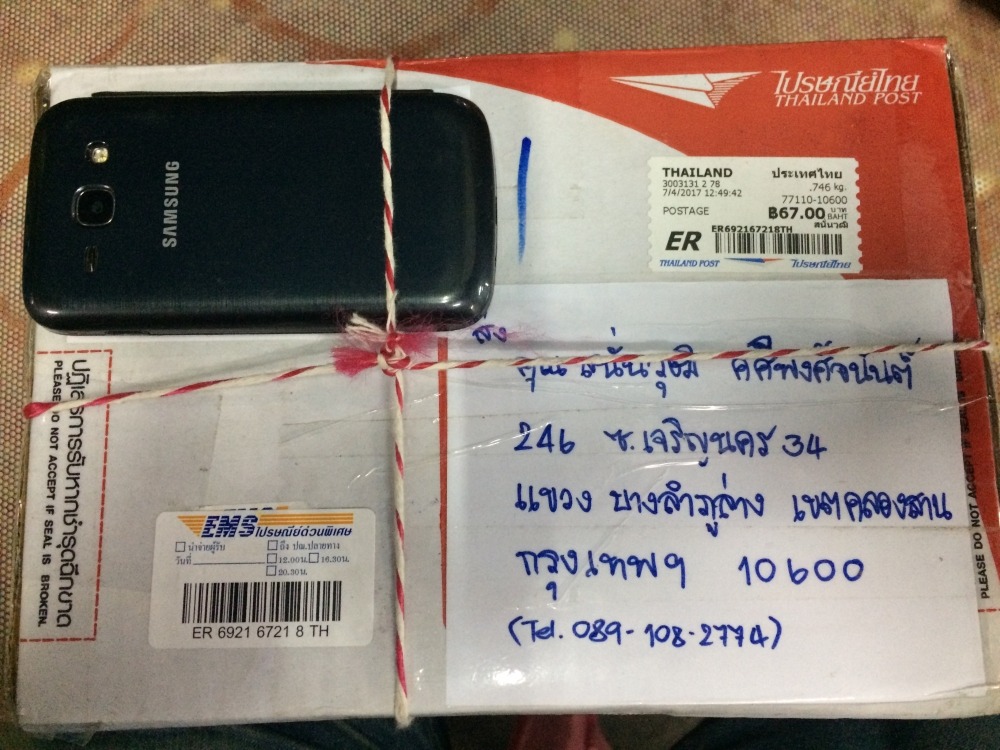 ไปรษณีย์ไทย
THAILAND POST
SAMSUNG
THAILAND ประเทศไทย
3003131 2 78 .746 kg.
7/4/2017 12:49:42 77110-10600
POSTAGE ฿67.00 บาท BAHT
ER692167218TH
ER
THAILAND POST ไปรษณีย์ไทย
ส่ง
คุณ
246 ซ.เจริญนคร 34
แขวง บางลำภูล่าง เขตคลองสาน
กรุงเทพฯ 10600
(Tel. 089-108-2774)
ปฏิเสธการรับหากชำรุดฉีกขาด
PLEASE DO NOT ACCEPT IF SEAL IS BROKEN.
EMS ไปรษณีย์ด่วนพิเศษ
นำจ่ายผู้รับ ถึง ปณ.ปลายทาง
วันที่ 12.00น. 16.30น.
20.30น.
ER 6921 6721 8 TH
PLEASE DO NOT ACCEPT IF